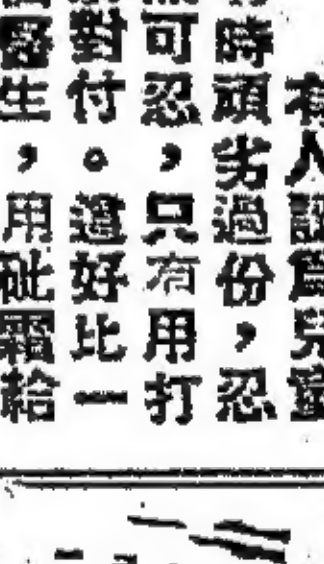 有人認爲兒童
時頑劣過份，忍
無可忍，只有用打
對付。這好比一
醫生，用砒霜給